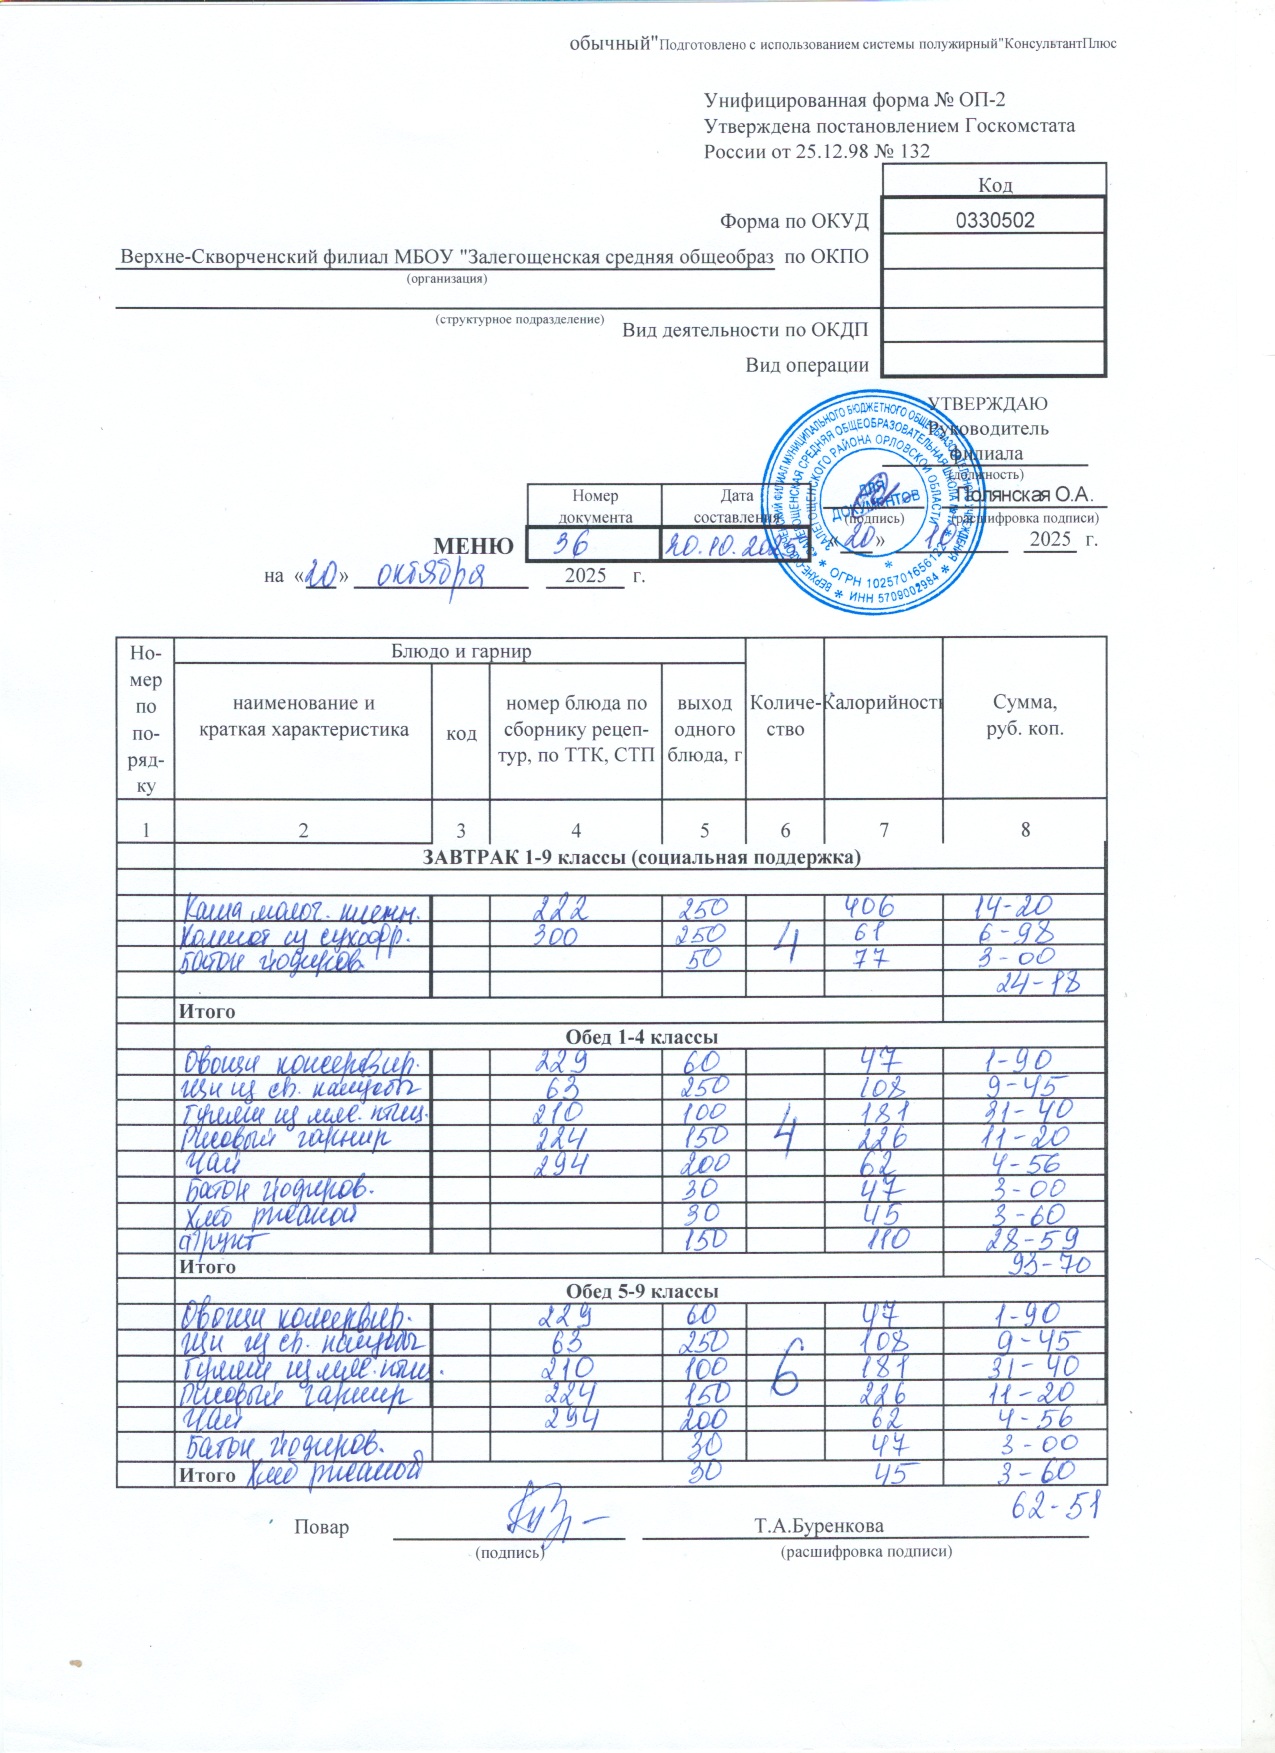 обычный"Подготовлено с использованием системы полужирный"КонсультантПлюс
Унифицированная форма № ОП-2
Утверждена постановлением Госкомстата
России от 25.12.98 № 132
Код
Форма по ОКУД 0330502
Верхне-Скворченский филиал МБОУ "Залегощенская средняя общеобраз по ОКПО
(организация)
(структурное подразделение)
Вид деятельности по ОКДП
Вид операции
УТВЕРЖДАЮ
Руководитель
филиала
(должность)
Полянская О.А.
(подпись) (расшифровка подписи)
«20» 10 2025 г.
ДЛЯ ДОКУМЕНТОВ
ОГРН 1025701656122
ИНН 5709002984
Номер документа Дата составления
МЕНЮ 36 20.10.2025
на «20» октября 2025 г.
Но-мер по по-ряд-ку Блюдо и гарнир Количе-ство Калорийность Сумма, руб. коп.
наименование и краткая характеристика код номер блюда по сборнику рецеп-тур, по ТТК, СТП выход одного блюда, г
1 2 3 4 5 6 7 8
ЗАВТРАК 1-9 классы (социальная поддержка)
Каша молоч. пшенн. 222 250 406 14-20
Компот из сухофр. 300 250 4 61 6-98
Батон йодиров. 50 77 3-00
24-18
Итого
Обед 1-4 классы
Овощи консервир. 229 60 47 1-90
Щи из св. капусты 63 250 108 9-45
Гуляш из мяс. птиц. 210 100 4 181 31-40
Рисовый гарнир 224 150 226 11-20
Чай 294 200 62 4-56
Батон йодиров. 30 47 3-00
Хлеб ржаной 30 45 3-60
Фрукт 150 110 28-59
Итого 93-70
Обед 5-9 классы
Овощи консервир. 229 60 47 1-90
Щи из св. капусты 63 250 108 9-45
Гуляш из мяс. птиц. 210 100 6 181 31-40
Рисовый гарнир 224 150 226 11-20
Чай 294 200 62 4-56
Батон йодиров. 30 47 3-00
Итого Хлеб ржаной 30 45 3-60
62-51
Повар Т.А.Буренкова
(подпись) (расшифровка подписи)